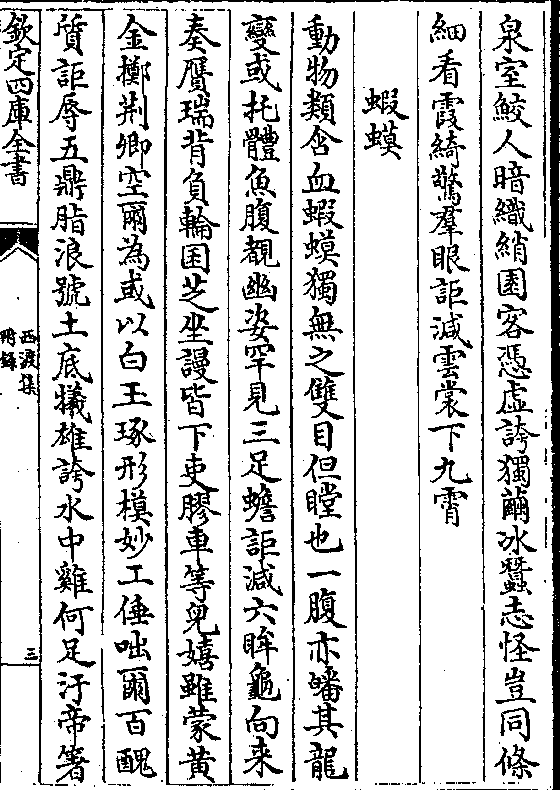 泉室鮫人暗織綃園客憑虛誇獨繭冰蠶志怪豈同條
細看霞綺驚羣眼詎減雲裳下九霄
蝦蟆
動物類含血蝦蟆獨無之雙目但瞠也一腹亦皤其龍
變或托體魚腹覩幽姿罕見三足蟾詎減六眸龜向来
奏贋瑞背負輪囷芝坐謾皆下吏膠車等兒嬉雖蒙黄
金擲荆卿空爾為或以白玉琢形模妙工倕咄爾百醜
質詎辱五鼎脂浪號土底犠雄誇水中雞何足汙帝箸
欽定四庫全書
西渡集
附錄
三